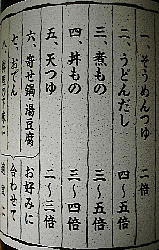 一、そうめんつゆ 二倍
二、うどんだし 四～五倍
三、煮もの 三～五倍
四、丼もの 三～四倍
五、天つゆ 二～三倍
六、寄せ鍋、湯豆腐 お好みに
七、おでん 合わせて